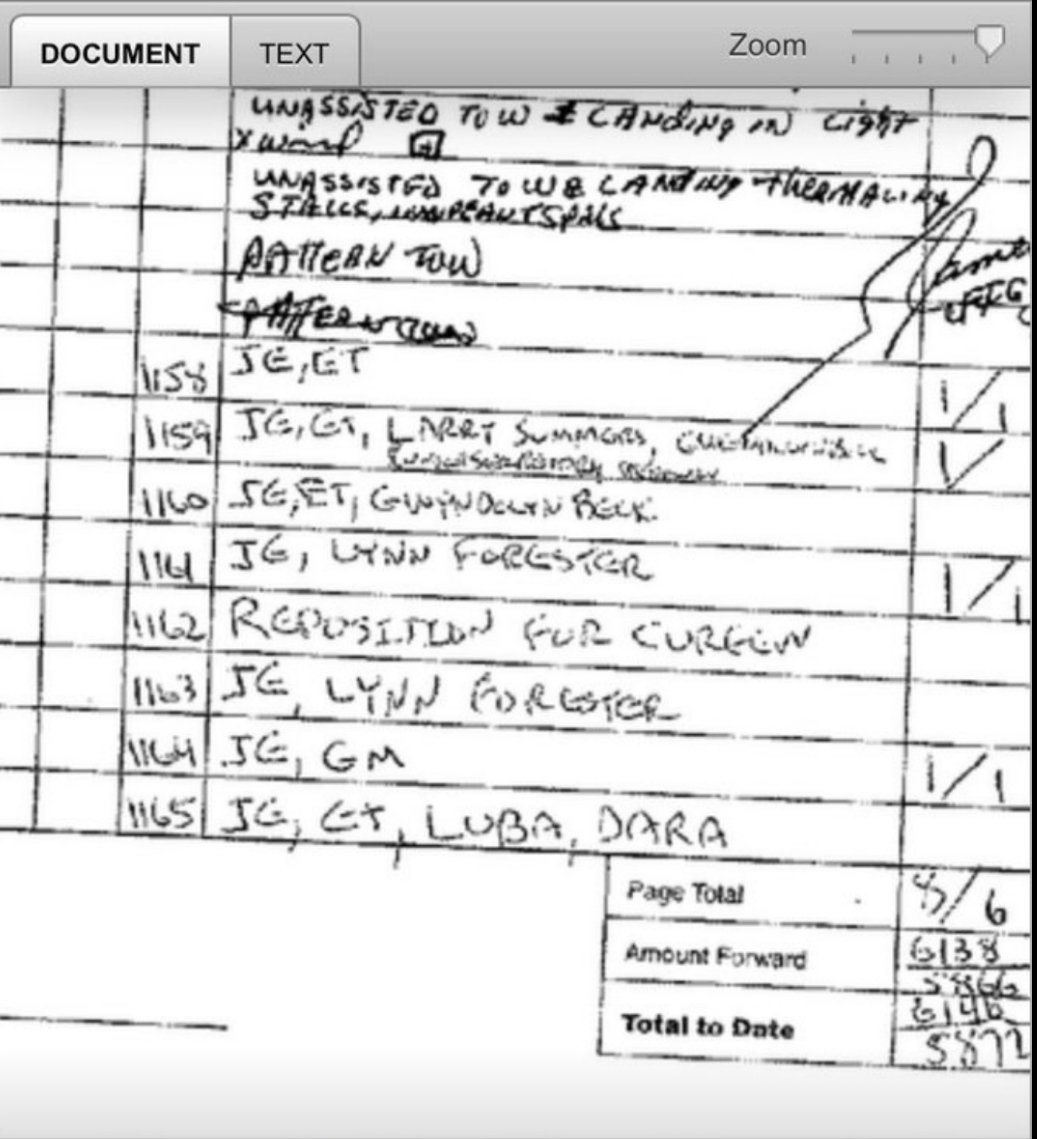 DOCUMENT TEXT Zoom
UNASSISTED TOW & LANDING IN LIGHT
X wind
UNASSISTED TOW & LANDING THERMALING
STALLS,
PATTERN TOW
PATTERN
1158 JE, ET 1/1
1159 JE, ET, LARRY SUMMERS,
1160 JE, ET, GWYNDOLYN BECK
1161 JE, LYNN FORESTER 1/1
1162 REPOSITION FOR CURFEW
1163 JE, LYNN FORESTER
1164 JE, GM 1/1
1165 JE, ET, LUBA, DARA
Page Total 8/6
Amount Forward 6138
5866
Total to Date 6146
5872